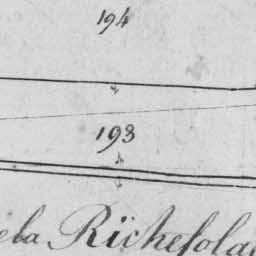 194
193
ela Richesola